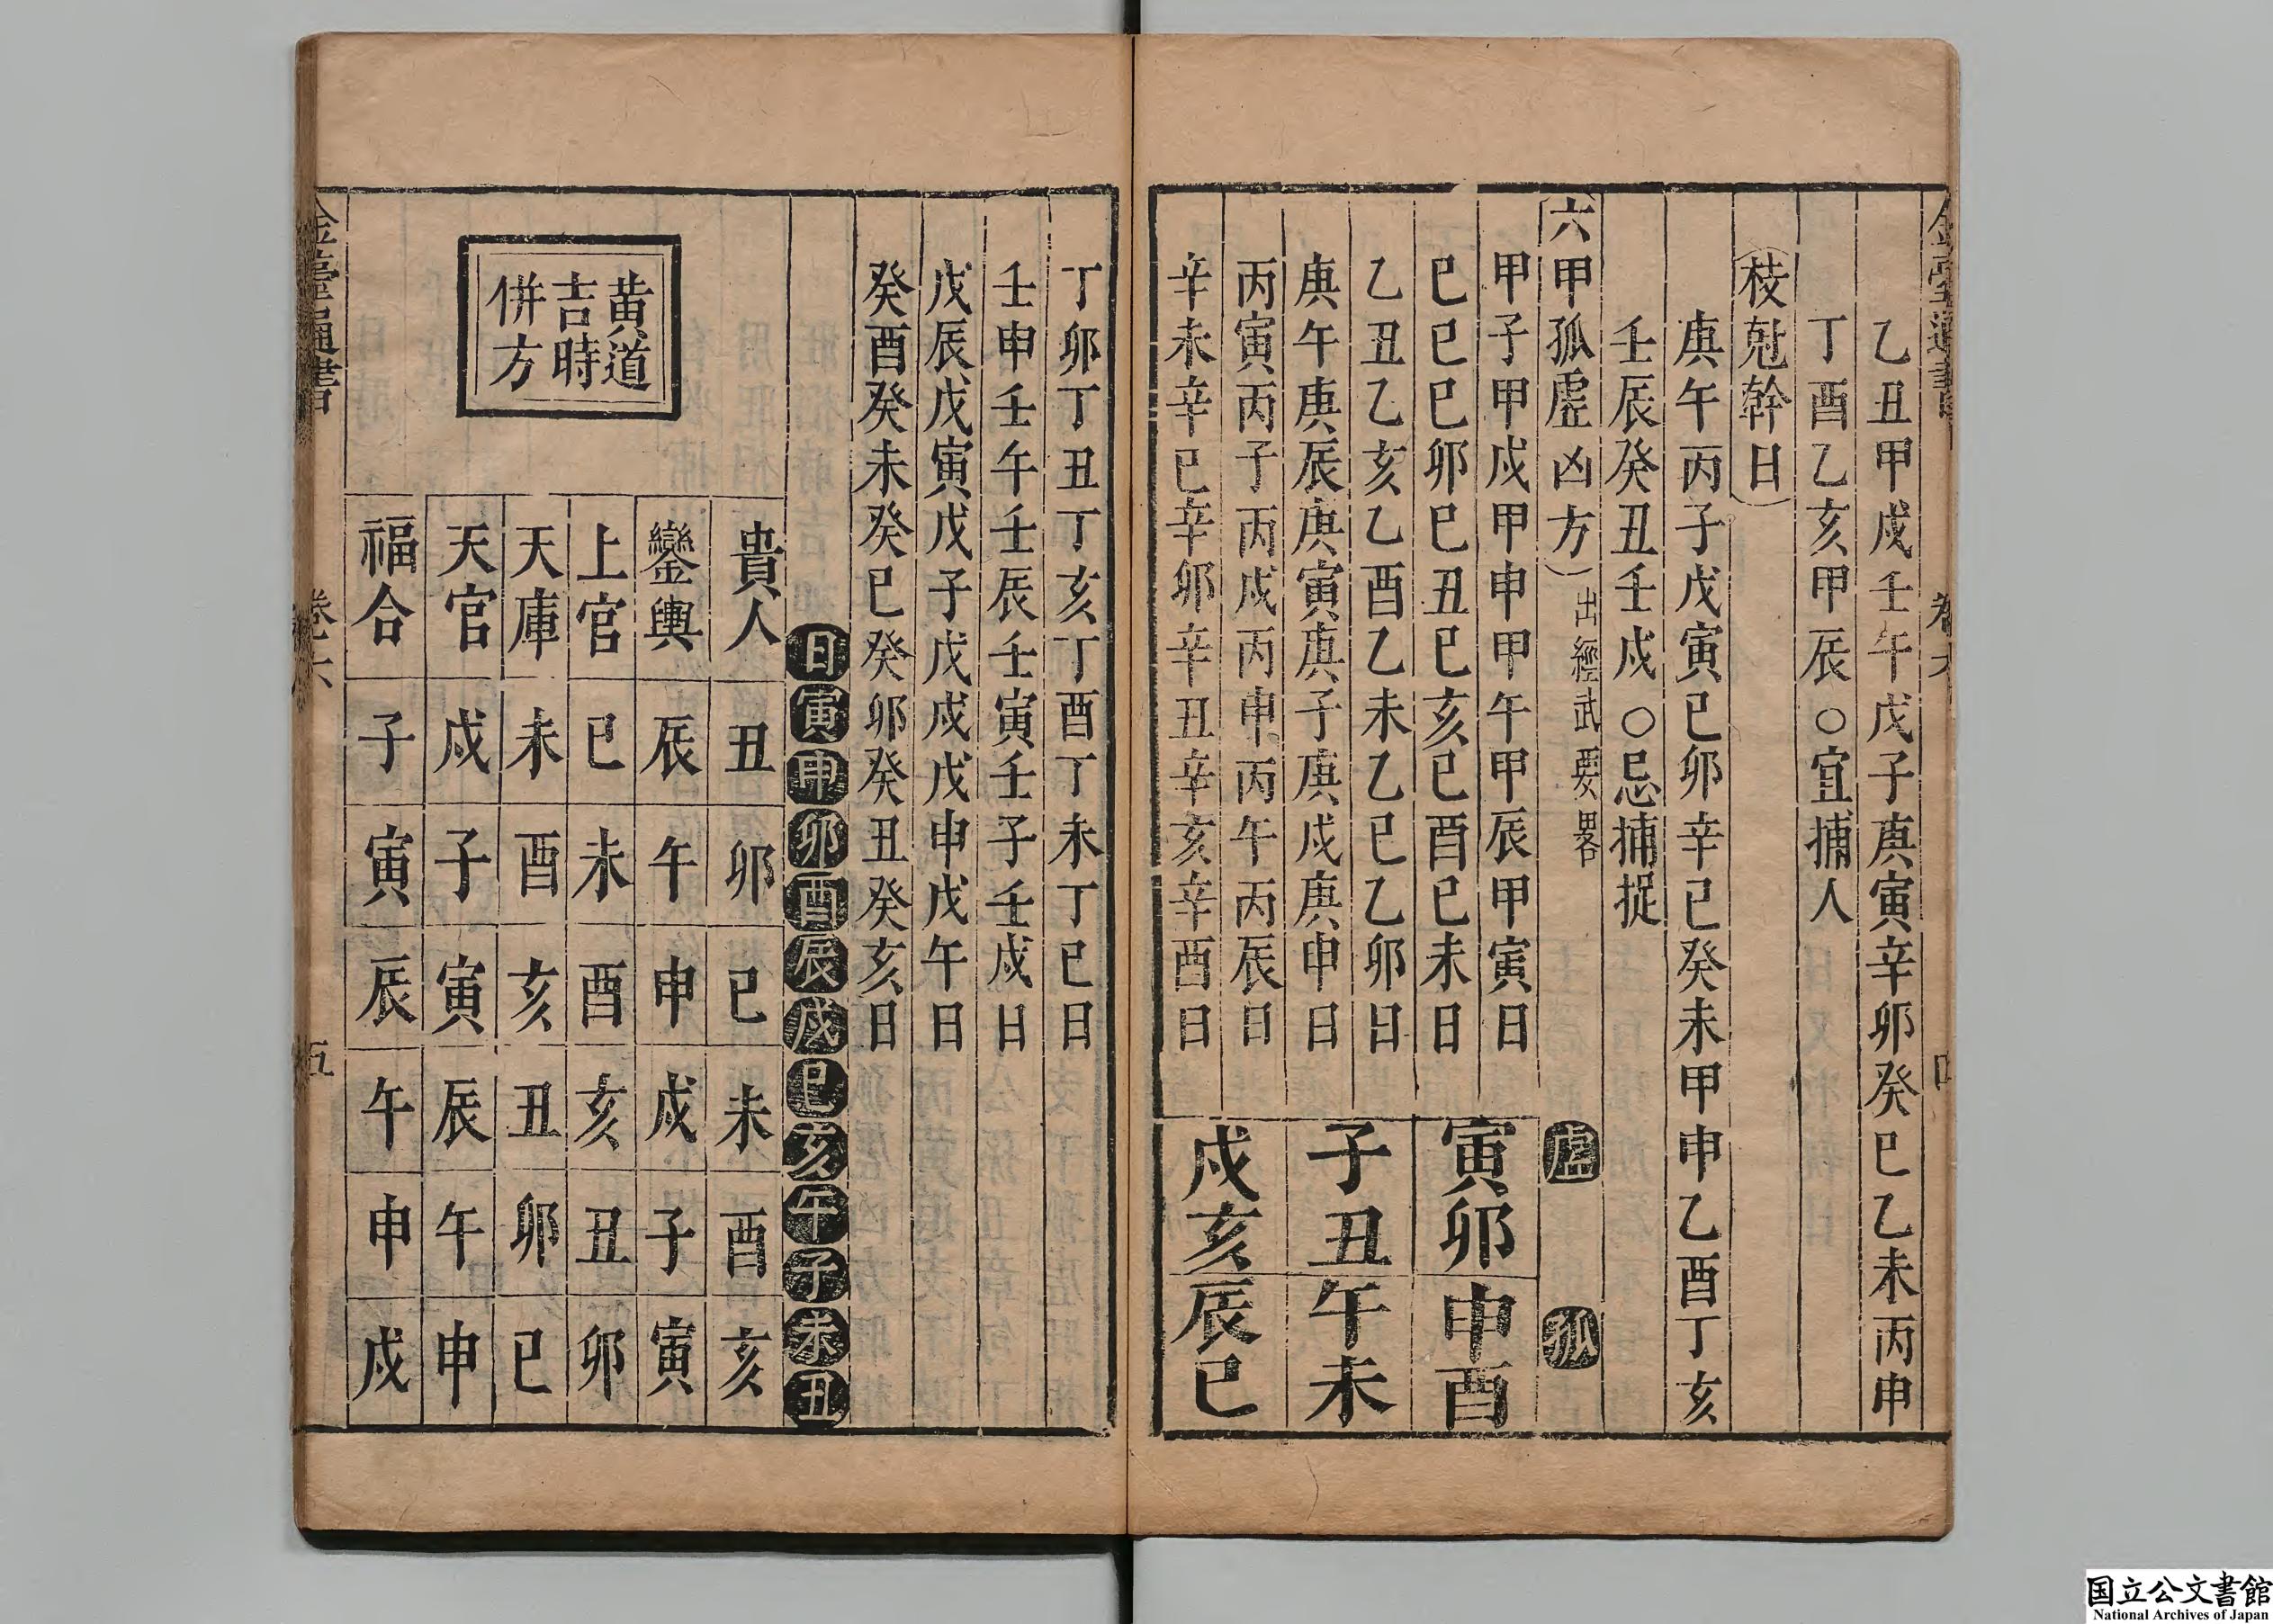 乙丑甲戌壬午戊子庚寅辛卯癸巳乙未丙申
丁酉乙亥甲辰○宜捕人
枝尅幹日
庚午丙子戊寅己卯辛巳癸未甲申乙酉丁亥
壬辰癸丑壬戌○忌捕捉
六甲孤虛凶方 出經武要畧 虛 孤
甲子甲戌甲申甲午甲辰甲寅日
己巳己卯己丑己亥己酉己未日
寅卯 申酉
乙丑乙亥乙酉乙未乙巳乙卯日
庚午庚辰庚寅庚子庚戌庚申日
子丑 午未
丙寅丙子丙戌丙申丙午丙辰日
辛未辛巳辛卯辛丑辛亥辛酉日
戌亥 辰巳
丁卯丁丑丁亥丁酉丁未丁巳日
壬申壬午壬辰壬寅壬子壬戌日
戊辰戊寅戊子戊戌戊申戊午日
癸酉癸未癸巳癸卯癸丑癸亥日
日寅申卯酉辰戌巳亥午子未丑
黄道
吉時
併方
貴人 丑 卯 巳 未 酉 亥
鑾輿 辰 午 申 戌 子 寅
上官 巳 未 酉 亥 丑 卯
天庫 未 酉 亥 丑 卯 巳
天官 戌 子 寅 辰 午 申
福合 子 寅 辰 午 申 戌
金臺通書 卷六 五
国立公文書館
National Archives of Japan